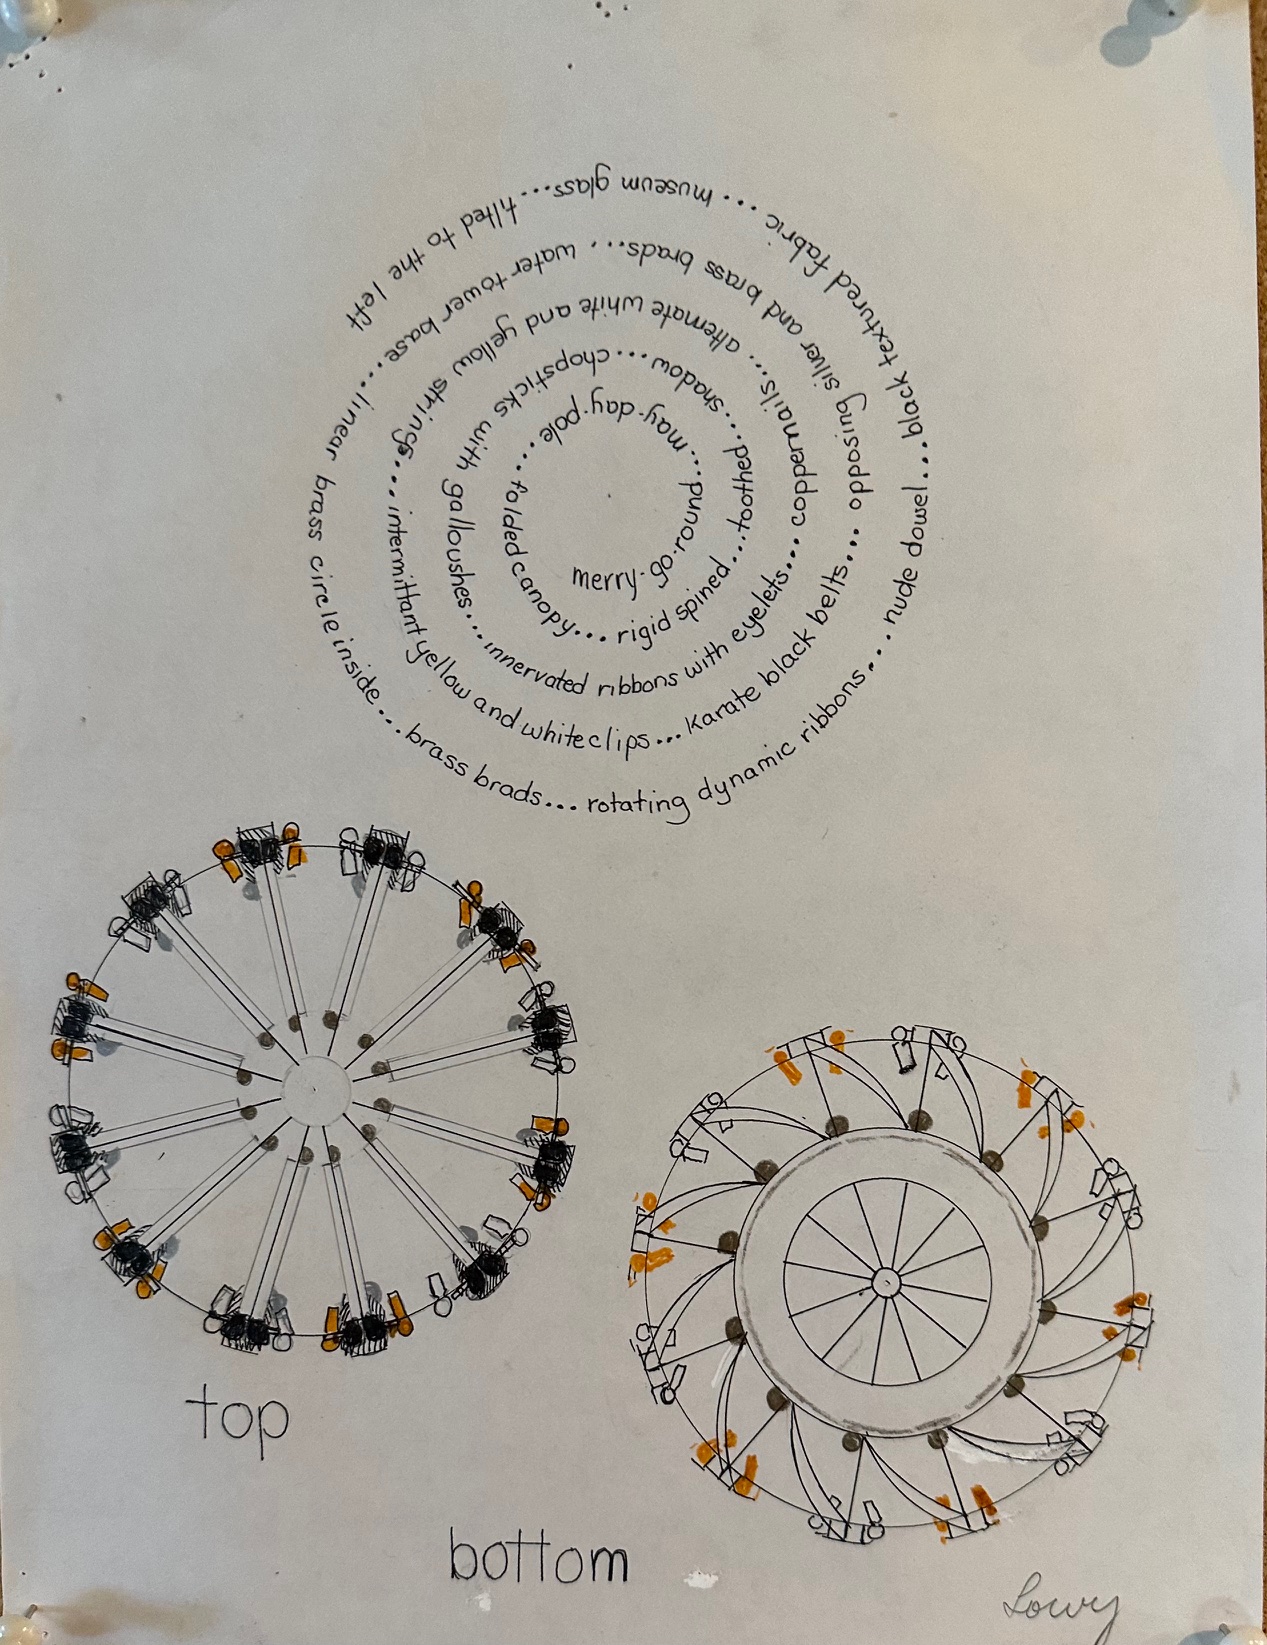 merry-go-round...may-day-pole...folded canopy...rigid spined...toothed...shadow...chopsticks with galloushes...innervated ribbons with eyelets...coppernails...alternate white and yellow strings...intermittant yellow and white clips...Karate black belts...opposing silver and brass brads...water tower base...linear brass circle inside...brass brads...rotating dynamic ribbons...nude dowel...black textured fabric...museum glass...tilted to the left
top
bottom
Lowy